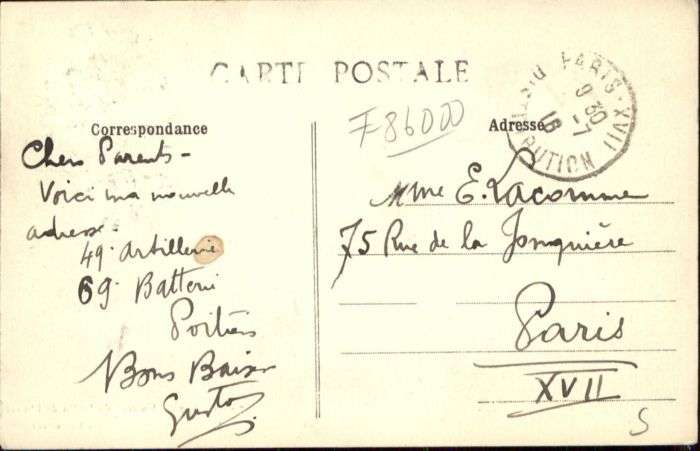 CARTE POSTALE
Correspondance
Adresse
F86000
PARIS XVII DISTRIBUTION
9 30
-7
16
Chers Parents -
Voici ma nouvelle
adresse -
49e Artillerie
69e Batterie
Poitiers
Bons Baisers
Mme E. Lacomme
75 Rue de la Jonquière
Paris
XVII
S